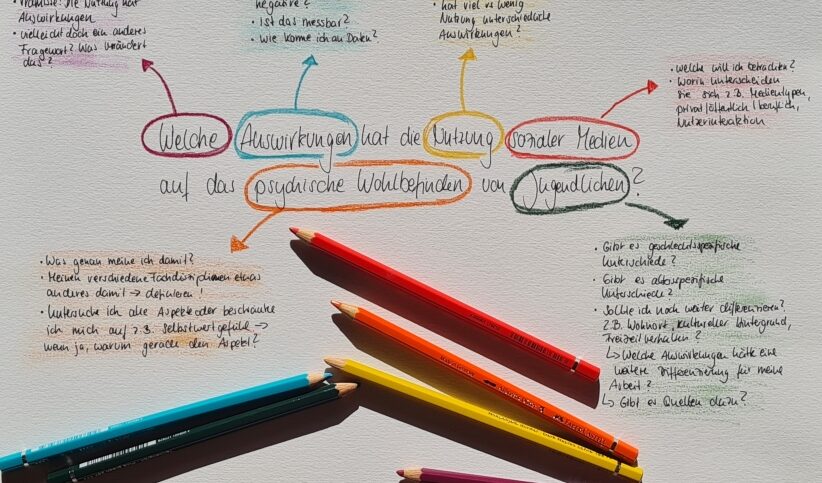 Prämisse: Die Nutzung hat
Auswirkungen
• vielleicht doch ein anderes
Fragewort? Was verändert
das?
negative?
• Ist das messbar?
• Wie komme ich an Daten?
• hat viel vs wenig
Nutzung unterschiedliche
Auswirkungen?
• welche will ich betrachten?
• Worin unterscheiden
sie sich z.B. Medientypen,
privat/öffentlich/beruflich,
Nutzerinteraktion
Welche Auswirkungen hat die Nutzung sozialer Medien
auf das psychische Wohlbefinden von Jugendlichen?
• Was genau meine ich damit?
• Meinen verschiedene Fachdisziplinen etwas
anderes damit → definieren!
• Untersuche ich alle Aspekte oder beschränke
ich mich auf z.B. Selbstwertgefühl →
wenn ja, warum gerade den Aspekt?
• Gibt es geschlechtsspezifische
Unterschiede?
• Gibt es altersspezifische
Unterschiede?
• Sollte ich noch weiter differenzieren?
z.B. Wohnort, kultureller Hintergrund,
Freizeitverhalten?
↳ Welche Auswirkungen hätte eine
weitere Differenzierung für meine
Arbeit?
↳ Gibt es Quellen dazu?